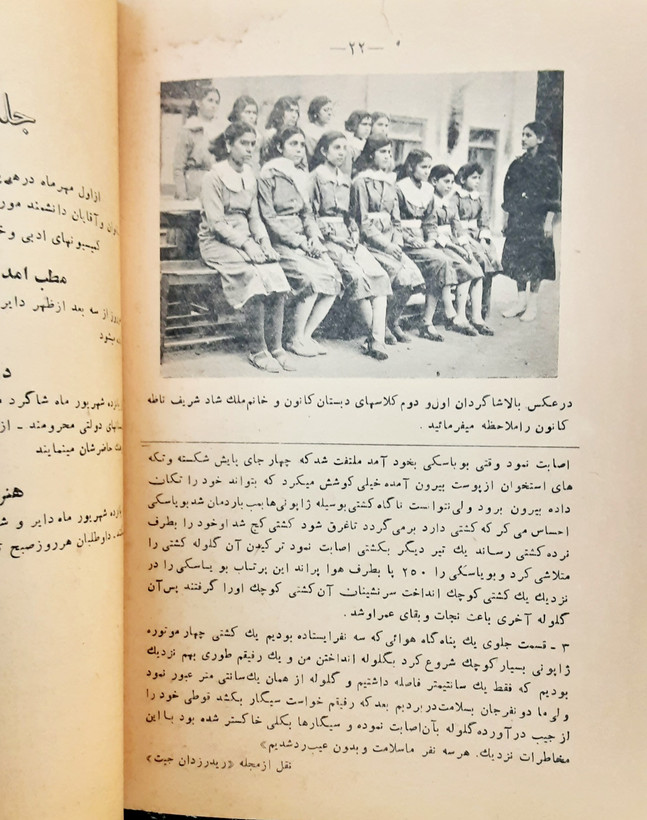 — ۲۲ —
درعکس بالاشاگردان اول‌و دوم کلاسهای دبستان کانون و خانم‌ملك شاد شریف ناظه
کانون راملاحظه میفرمائید .
اصابت نمود وقتی بوباسکی بخود آمد ملتفت شدکه چهار جای پایش شکسته وتکه
های استخوان ازپوست بیرون آمده خیلی کوشش میکرد که بتواند خود را تکان
داده بیرون برود ولی نتوانست ناگاه کشتی بوسیله ژاپونی‌هابمب باردمان شد بوباسکی
احساس می کر که کشتی دارد برمی‌گردد تاغرق شود کشتی کج شد اوخود را بطرف
نرده کشتی رساند یك تیر دیگر بکشتی اصابت نمود ترکیدن آن گلوله کشتی را
متلاشی کرد و بوباسکی را ۲۵۰ پا بطرف هوا پراند این پرتاب بوباسکی را در
نزدیك یك کشتی کوچك انداخت سرنشینان آن کشتی کوچك اورا گرفتند پس‌آن
گلوله آخری باعث نجات وبقای عمراوشد .
۳ ـ قسمت جلوی یك پناه گاه هوائی که سه نفرایستاده بودیم یك کشتی چهار موتوره
ژاپونی بسیار کوچك شروع کرد بگلوله انداختن من و یك رفیقم طوری بهم نزدیك
بودیم که فقط یك سانتیمتر فاصله داشتیم و گلوله از همان یك‌سانتی متر عبور نمود
ولی ما دو نفرجان بسلامت‌در بردیم بعد که رفیقم خواست سیگار بکشد قوطی خود را
از جیب درآورده گلوله بآن‌اصابت نموده و سیگارها بکلی خاکستر شده بود با این
مخاطرات نزدیك، هرسه نفر ماسلامت وبدون عیب‌ردشدیم»
نقل ازمجله «ریدرزدان جیت»
جلـ
ازاول مهرماه درهر
وآقایان دانشمند مور
کمیسیونهای ادبی وخ
مطب احمد
از سه بعد ازظهر دایر
میشود
د
شهریور ماه شاگرد
دولتی محرومند ـ از
حاضرشان مینمایند
هنر
شهریور ماه دایر و ش
داوطلبان هرروزصبح